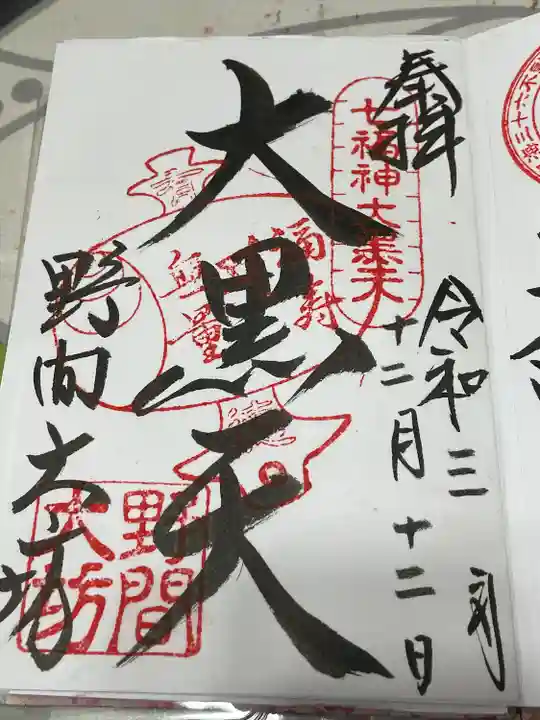 奉拝
令和三
十二月十二日
七福神大黒天
大黒天
福寿
無量
野間大坊
野間
大坊